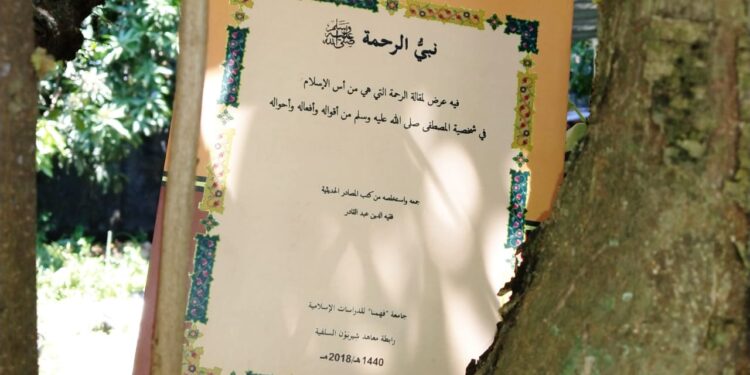 نبيُّ الرحمة ﷺ
فيه عرض لمقالة الرحمة التي هي من أس الإسلام
في شخصية المصطفى صلى الله عليه وسلم من أقواله وأفعاله وأحواله
جمعه واستخلصه من كتب المصادر الحديثية
فقيه الدين عبد القادر
جامعة "فهمنا" للدراسات الإسلامية
رابطة معاهد شيربون السلفية
1440هـ/2018مـ